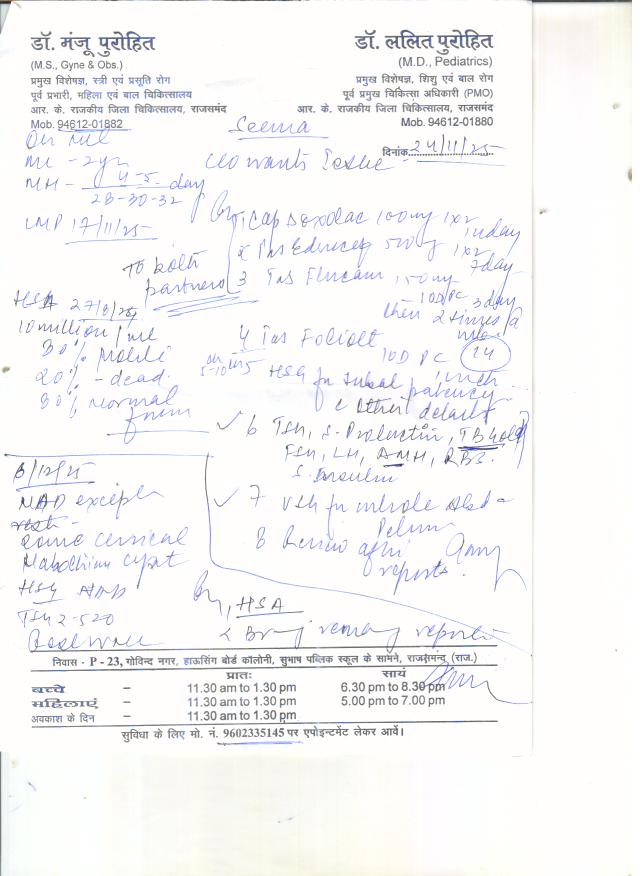 डॉ. मंजू पुरोहित
(M.S., Gyne & Obs.)
प्रमुख विशेषज्ञ, स्त्री एवं प्रसूति रोग
पूर्व प्रभारी, महिला एवं बाल चिकित्सालय
आर. के. राजकीय जिला चिकित्सालय, राजसमंद
Mob. 94612-01882
डॉ. ललित पुरोहित
(M.D., Pediatrics)
प्रमुख विशेषज्ञ, शिशु एवं बाल रोग
पूर्व प्रमुख चिकित्सा अधिकारी (PMO)
आर. के. राजकीय जिला चिकित्सालय, राजसमंद
Mob. 94612-01880
Seema
दिनांक 24/11/25
ML - 2yr
C/o wants issue
MH - 4-5 day
28-30-32
LMP 17/11/25
To both
partners
1 Cap 100mg 1x2
2 Tab 500mg 1x2
7day
3 Tab 150mg
3day
4 Tab
10D PC
HSG for tubal patency
& other details
6 TSH, S-Prolactin, TB Gold
FSH, LH, AMH, RBS
S. Insulin
7 USG for whole Abd &
Pelvis
8 Review after
reports.
HSA 27/8/25
10 million/ml
30% Motile
20% - dead
80% normal
form
8/12/25
NAD except
some cervical
Nabothian cyst
HSG
TSH 2-520
Rest
HSA
2 Bring remaining reports
निवास - P - 23, गोविन्द नगर, हाऊसिंग बोर्ड कॉलोनी, सुभाष पब्लिक स्कूल के सामने, राजसमन्द (राज.)
प्रातः सायं
बच्चे – 11.30 am to 1.30 pm 6.30 pm to 8.30 pm
महिलाएं – 11.30 am to 1.30 pm 5.00 pm to 7.00 pm
अवकाश के दिन – 11.30 am to 1.30 pm
सुविधा के लिए मो. नं. 9602335145 पर एपोइन्टमेंट लेकर आवें।